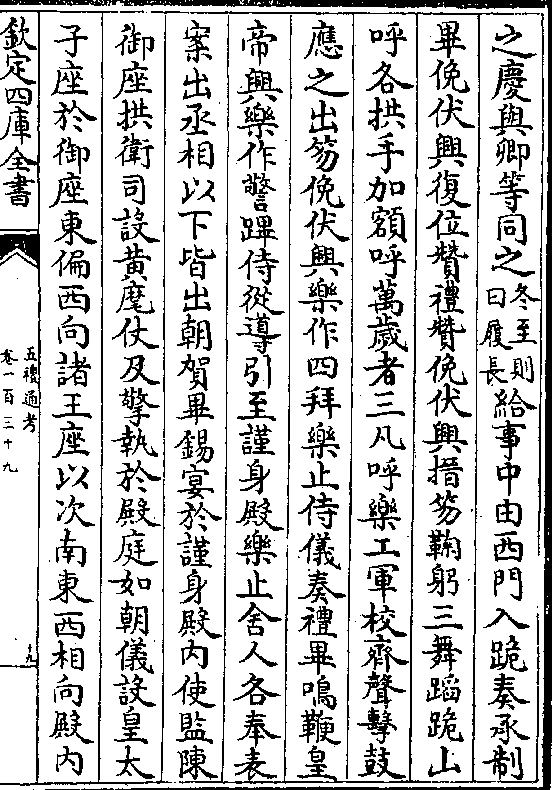 之慶與卿等同之冬至則曰履長給事中由西門入跪奏承制
畢俛伏興復位贊禮贊俛伏興搢笏鞠躬三舞蹈跪山
呼各拱手加額呼萬歲者三凡呼樂工軍校齊聲擊鼓
應之出笏俛伏興樂作四拜樂止侍儀奏禮畢鳴鞭皇
帝興樂作警蹕侍從導引至謹身殿樂止舍人各奉表
案出丞相以下皆出朝賀畢錫宴於謹身殿內使監陳
御座拱衛司設黃麾仗及擎執於殿庭如朝儀設皇太
子座於御座東偏西向諸王座以次南東西相向殿內
欽定四庫全書
五禮通考
卷一百三十九
十九